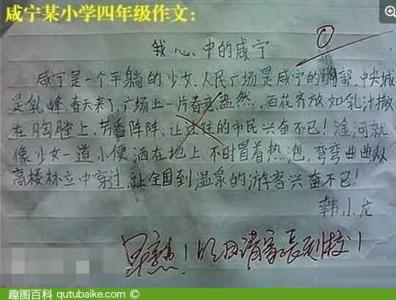 咸宁某小学四年级作文:
我心中的咸宁
咸宁是一个平躺的少女,人民广场是咸宁的胸部,中央城
是乳峰,春天来了,广场上一片春意盎然,百花齐放如乳汁撒
在胸膛上,芳香阵阵,让过往的市民兴奋不已!淦河就
像少女一道小便洒在地上,不时冒着热泡,弯弯曲曲从
高楼林立中穿过,让全国到温泉的游客兴奋不已!
韩小龙
早熟!明日请家长到校!
趣图百科 qutubaike.com